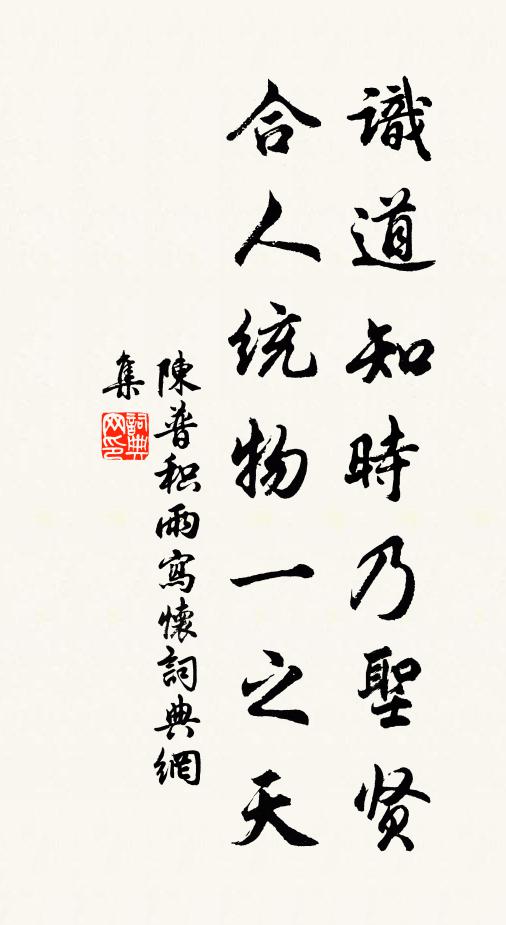 識道知時乃聖贤
合人統物一之天
陳普积雨寫懷詞典網
集
詞典
网印